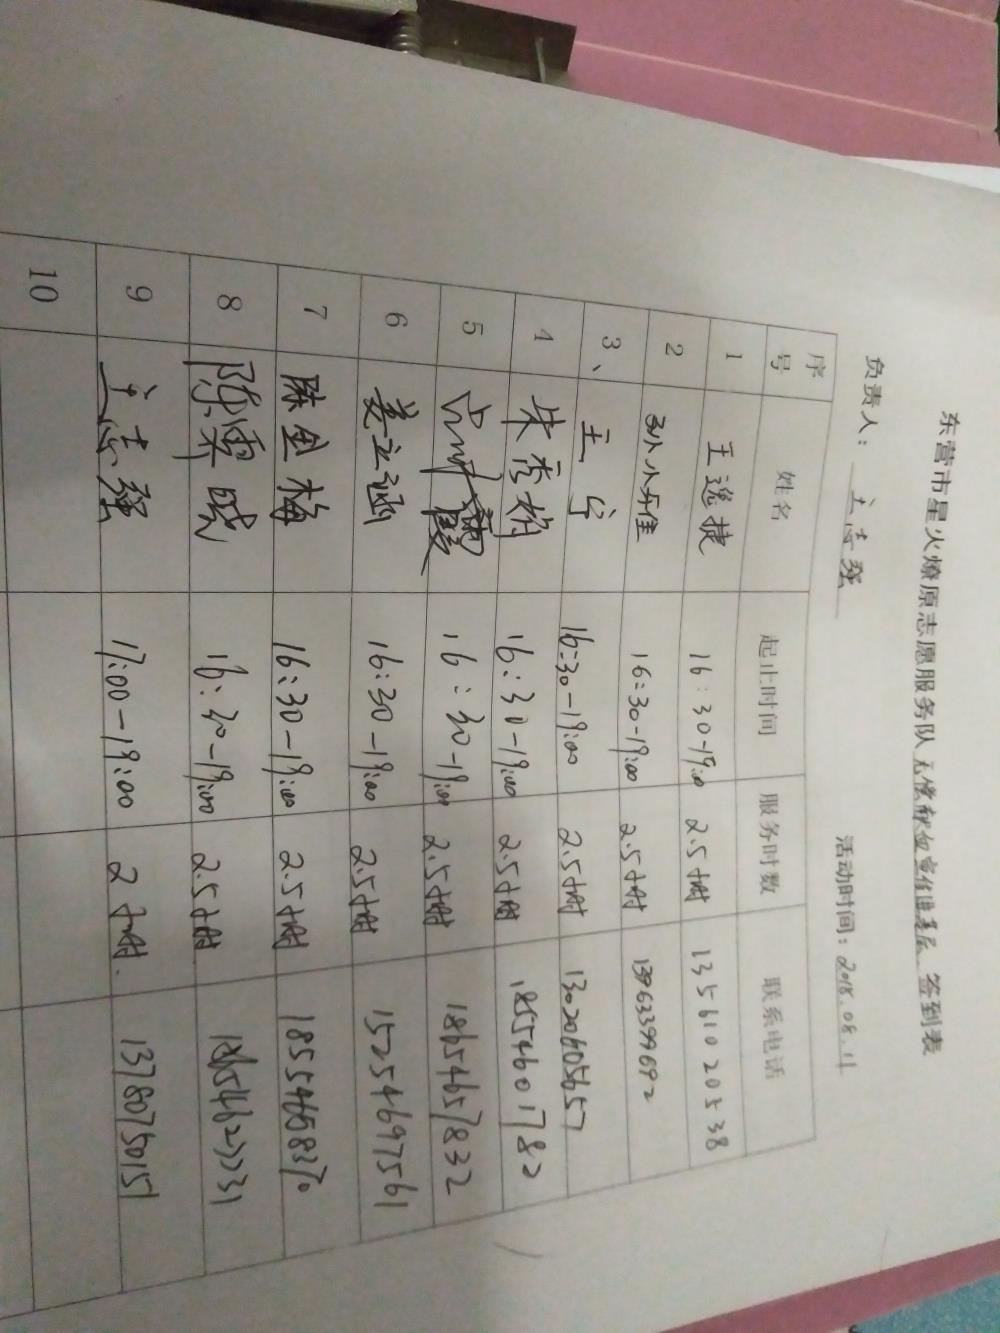 东营市星火燎原志愿服务队无偿献血宣传进基层 签到表
负责人： 王志强 活动时间：2018.08.11
序号 姓名 起止时间 服务时数 联系电话
1 王逸捷 16:30-19:00 2.5小时 13561020538
2 孙小雅 16:30-19:00 2.5小时 13963399692
3、 王宁 16:30-19:00 2.5小时 13020605657
4 朱秀梅 16:30-19:00 2.5小时 18554601782
5 16:30-19:00 2.5小时 18654657832
6 姜立涵 16:30-19:00 2.5小时 15254697561
7 陈金梅 16:30-19:00 2.5小时 18554658370
8 16:30-19:00 2.5小时
9 王志强 17:00-19:00 2小时. 13780750151
10